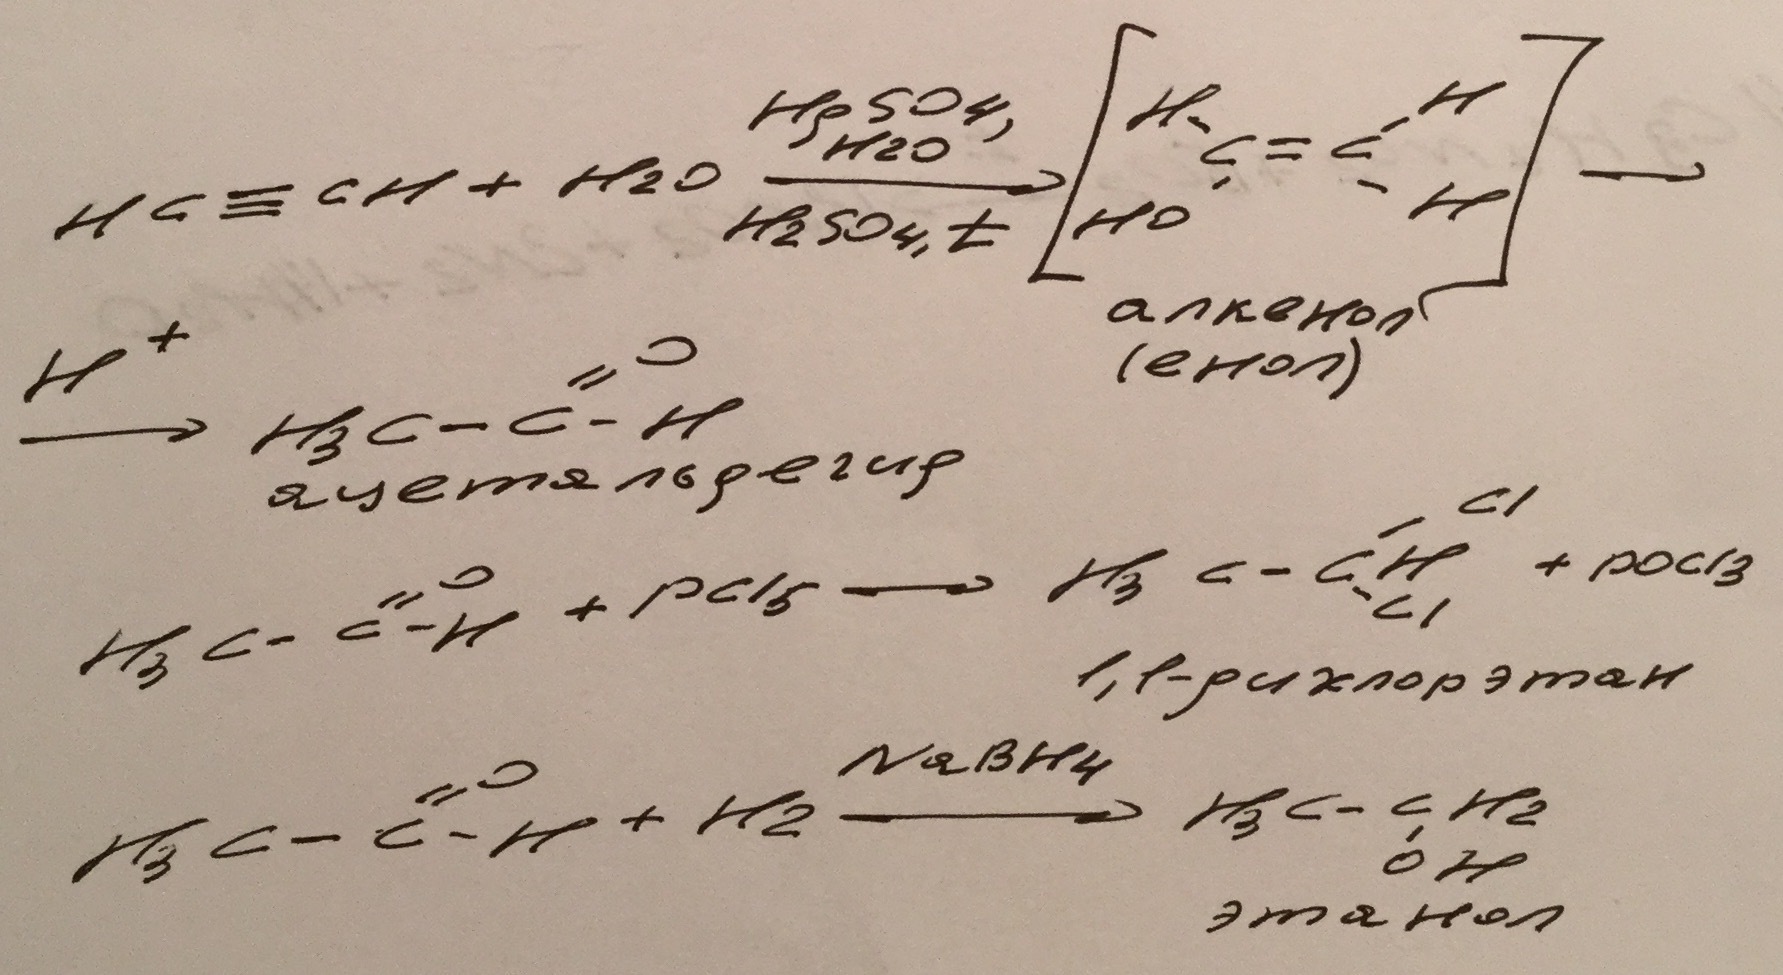 HC≡CH + H2O HgSO4, H2O H2SO4, t [H-C=C-H HO H] →
алкенол
(енол)
H+ → H3C-C=O-H
ацетальдегид
H3C-C=O-H + PCl5 → H3C-CH-Cl Cl + POCl3
1,1-дихлорэтан
H3C-C=O-H + H2 NaBH4 → H3C-CH2
OH
этанол